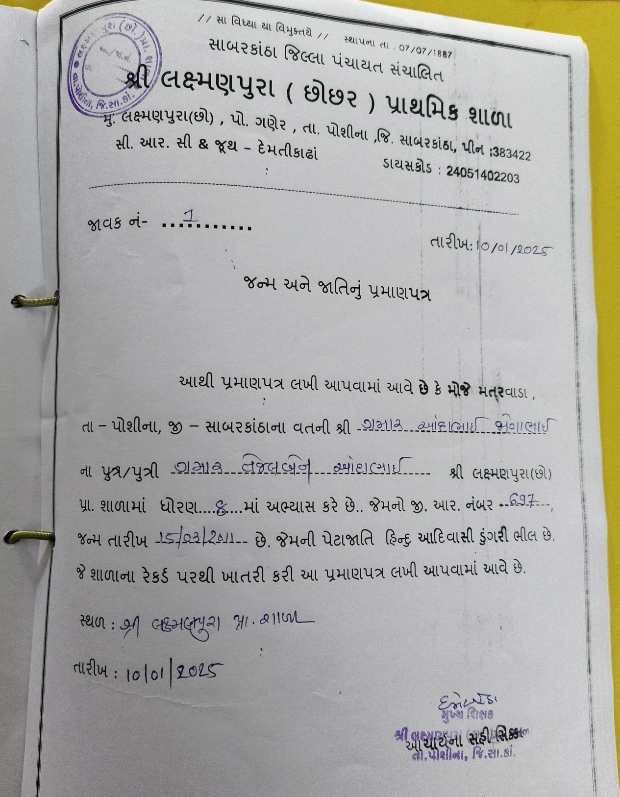 // સા વિધ્યા યા વિમુક્તયે // સ્થાપના તા . 07/07/1887
સાબરકાંઠા જિલ્લા પંચાયત સંચાલિત
શ્રી લક્ષ્મણપુરા ( છોછર ) પ્રાથમિક શાળા
મુ. લક્ષ્મણપુરા(છો) , પો. ગણેર , તા. પોશીના ,જિ. સાબરકાંઠા, પીન :383422
સી. આર. સી & જૂથ – દેમતીકાઢાં ડાયસકોડ : 24051402203
જાવક નં- 1
તારીખ: 10/01/2025
જન્મ અને જાતિનું પ્રમાણપત્ર
આથી પ્રમાણપત્ર લખી આપવામાં આવે છે કે મોજે મતરવાડા ,
તા – પોશીના, જી – સાબરકાંઠાના વતની શ્રી
ના પુત્ર/પુત્રી શ્રી લક્ષ્મણપુરા(છો)
પ્રા. શાળામાં ધોરણ....8...માં અભ્યાસ કરે છે.. જેમનો જી. આર. નંબર ..697...,
જન્મ તારીખ 15/03/2011 છે. જેમની પેટાજાતિ હિન્દુ આદિવાસી ડુંગરી ભીલ છે.
જે શાળાના રેકર્ડ પરથી ખાતરી કરી આ પ્રમાણપત્ર લખી આપવામાં આવે છે.
સ્થળ : શ્રી લક્ષ્મણપુરા પ્રા. શાળા
તારીખ : 10/01/2025
મુખ્ય શિક્ષક
આચાર્યના સહી સિક્કા
તા.પોશીના, જિ.સા.કાં.